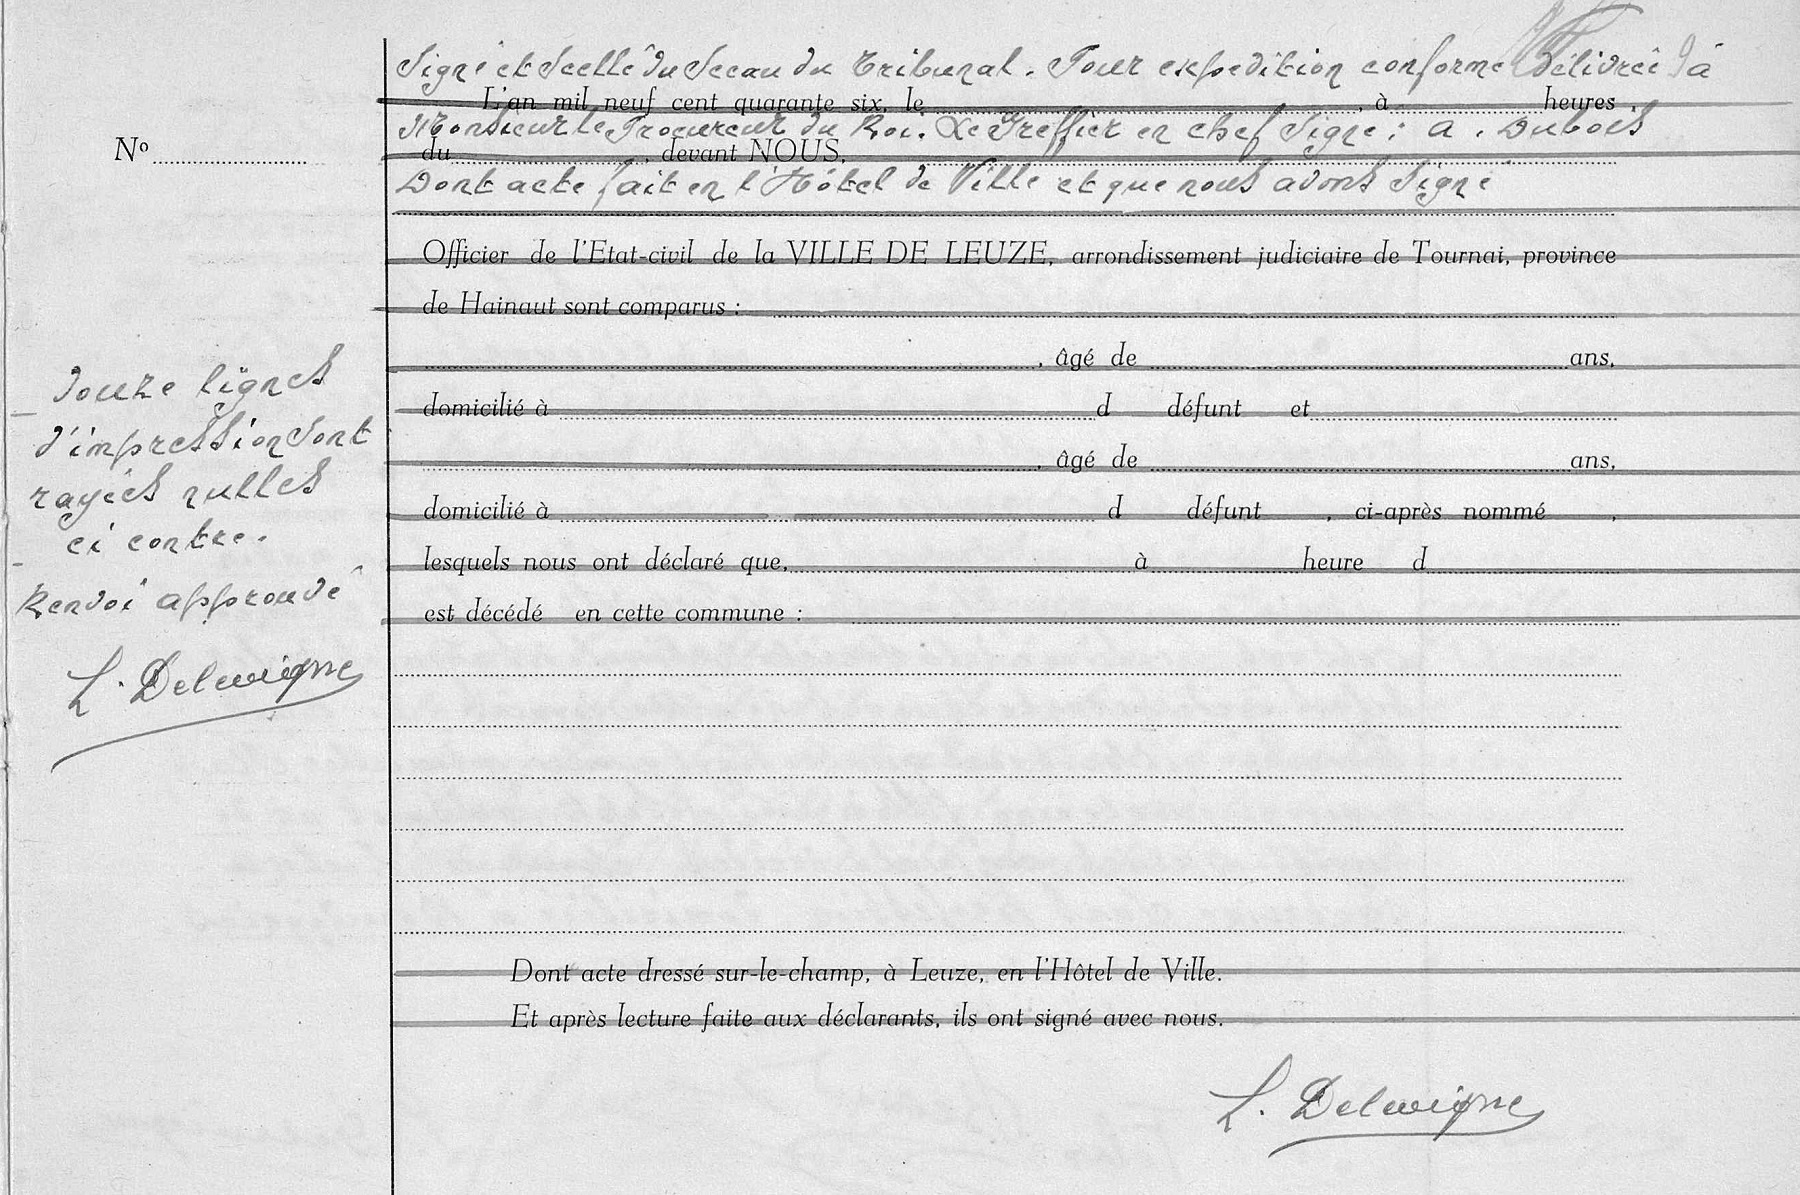 Signé et Scellé du Sceau du Tribunal. Pour expédition conforme délivrée à
L'an mil neuf cent quarante six, le , à heures ,
Monsieur le Procureur du Roi. Le Greffier en chef Signé : A. Dubois
du , devant NOUS,
Dont acte fait en l'Hôtel de Ville et que nous avons Signé
Officier de l'Etat-civil de la VILLE DE LEUZE, arrondissement judiciaire de Tournai, province
de Hainaut sont comparus :
, âgé de ans,
domicilié à d défunt et
, âgé de ans,
domicilié à d défunt , ci-après nommé ,
lesquels nous ont déclaré que, à heure d
est décédé en cette commune :
Dont acte dressé sur-le-champ, à Leuze, en l'Hôtel de Ville.
Et après lecture faite aux déclarants, ils ont signé avec nous.
L. Delevigne
No
Douze lignes
d'impression sont
rayées nulles
ci contre.
Renvoi approuvé
L. Delevigne